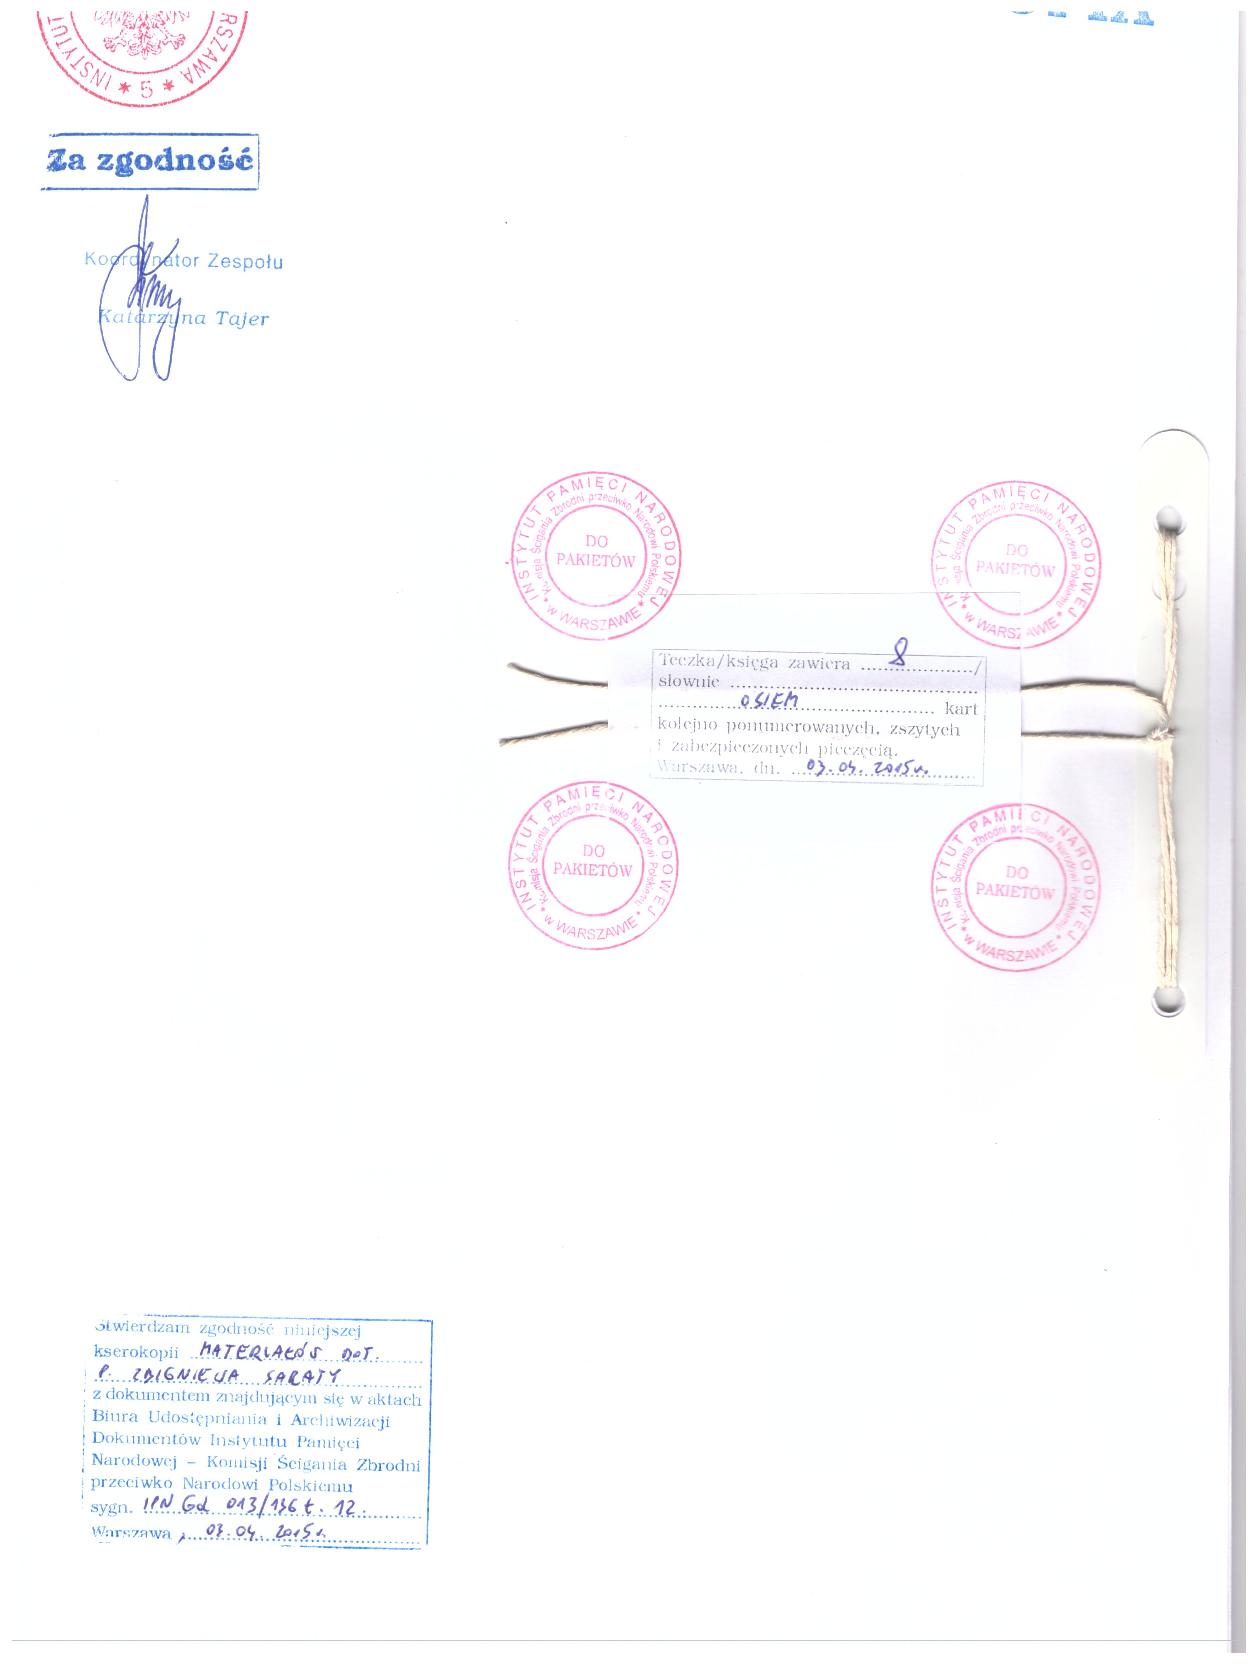 RSZAWA * 5 * INSTYTUT
Za zgodność
Koordynator Zespołu
Katarzyna Tajer
INSTYTUT PAMIĘCI NARODOWEJ
Komisja Ścigania Zbrodni przeciwko Narodowi Polskiemu
* w WARSZAWIE *
DO
PAKIETÓW
INSTYTUT PAMIĘCI NARODOWEJ
Komisja Ścigania Zbrodni przeciwko Narodowi Polskiemu
* w WARSZAWIE *
DO
PAKIETÓW
Teczka/księga zawiera 8 /
słownie
OSIEM kart
kolejno ponumerowanych, zszytych
i zabezpieczonych pieczęcią.
Warszawa, dn. 03.04.2015r.
INSTYTUT PAMIĘCI NARODOWEJ
Komisja Ścigania Zbrodni przeciwko Narodowi Polskiemu
* w WARSZAWIE *
DO
PAKIETÓW
INSTYTUT PAMIĘCI NARODOWEJ
Komisja Ścigania Zbrodni przeciwko Narodowi Polskiemu
* w WARSZAWIE *
DO
PAKIETÓW
Stwierdzam zgodność niniejszej
kserokopii MATERIAŁÓW DOT.
P. ZBIGNIEWA SARATY
z dokumentem znajdującym się w aktach
Biura Udostępniania i Archiwizacji
Dokumentów Instytutu Pamięci
Narodowej – Komisji Ścigania Zbrodni
przeciwko Narodowi Polskiemu
sygn. IPN Gd 013/136 t. 12.
Warszawa, 03.04.2015r.